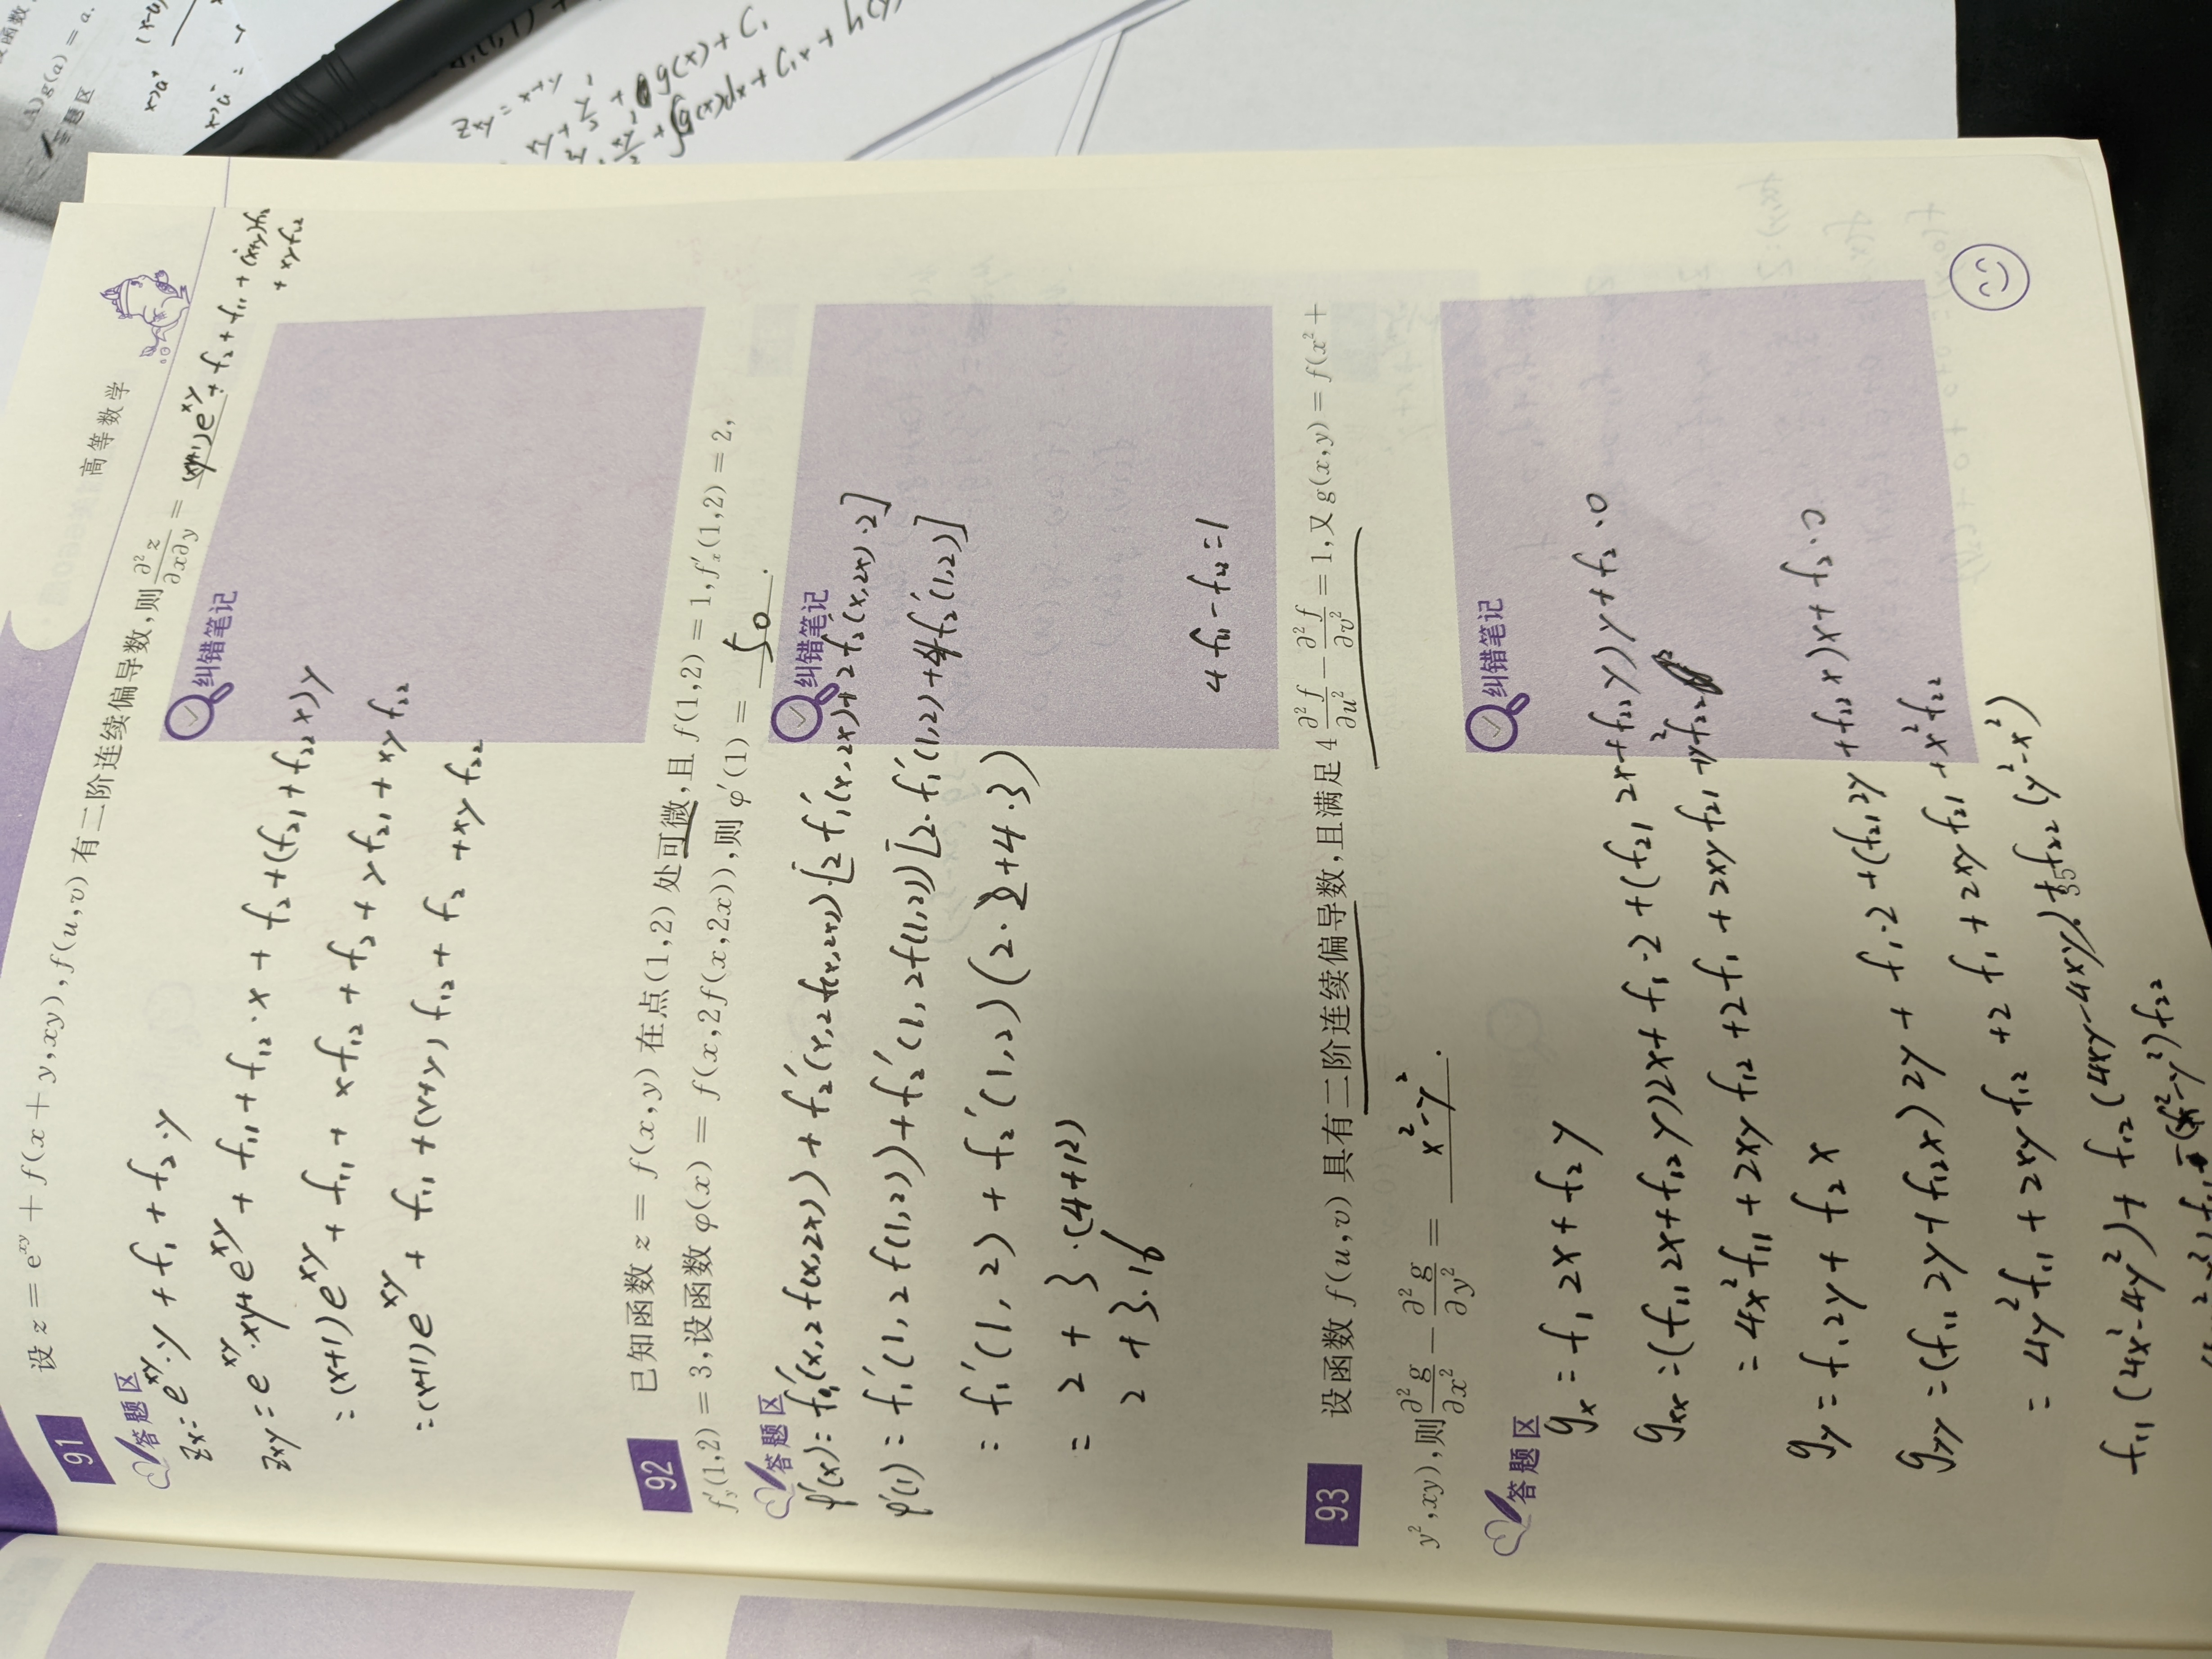 高等数学
91 设 z = e^{xy} + f(x + y, xy), f(u, v) 有二阶连续偏导数, 则 ∂²z/∂x∂y = (xy+1)e^{xy} + f₂ + f₁₁ + (x+y)f₁₂
+ xy f₂₂
答题区
纠错笔记
Zx = e^{xy}·y + f₁ + f₂·y
Zxy = e^{xy}·xy + e^{xy} + f₁₁ + f₁₂·x + f₂ + (f₂₁ + f₂₂ x) y
= (x+1)e^{xy} + f₁₁ + x f₁₂ + f₂ + y f₂₁ + xy f₂₂
= (x+1)e^{xy} + f₁₁ + (x+y) f₁₂ + f₂ + xy f₂₂
92 已知函数 z = f(x, y) 在点(1,2) 处可微, 且 f(1,2) = 1, f′ₓ(1,2) = 2,
f′ᵧ(1,2) = 3, 设函数 φ(x) = f(x, 2f(x, 2x)), 则 φ′(1) = 50.
答题区
纠错笔记
φ′(x) = f₁′(x, 2f(x,2x)) + f₂′(x, 2f(x,2x))·[2·f₁′(x,2x) + 2f₂′(x,2x)·2]
φ′(1) = f₁′(1, 2f(1,2)) + f₂′(1, 2f(1,2)) [2·f₁′(1,2) + 4f₂′(1,2)]
= f₁′(1, 2) + f₂′(1,2) (2·2 + 4·3)
= 2 + 3·(4+12)
2 + 3·16
4f₁₁ - f₂₂ = 1
93 设函数 f(u, v) 具有二阶连续偏导数, 且满足 4 ∂²f/∂u² − ∂²f/∂v² = 1, 又 g(x, y) = f(x² +
y², xy), 则 ∂²g/∂x² − ∂²g/∂y² = x² - y².
答题区
纠错笔记
gx = f₁ 2x + f₂ y
gxx = (f₁₁ 2x + f₁₂ y) 2x + f₁·2 + (f₂₁ 2x + f₂₂ y) y + f₂·0
= 4x² f₁₁ + 2xy f₁₂ + 2f₁ + 2xy f₂₁ + y² f₂₂
gy = f₁ 2y + f₂ x
gyy = (f₁₁ 2y + f₁₂ x) 2y + f₁·2 + (f₂₁ 2y + f₂₂ x) x + f₂·0
= 4y² f₁₁ + 2xy f₁₂ + 2f₁ + 2xy f₂₁ + x² f₂₂
f₁₁ (4x² - 4y²) + f₁₂ (4xy - 4xy) + f₂₂ (y² - x²)
35